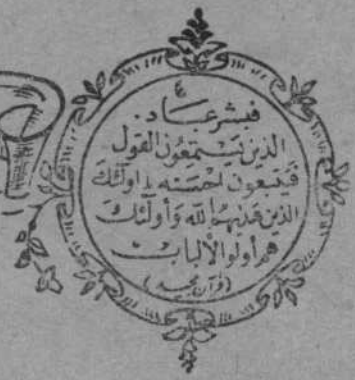 فبشر عباد.
الذين يستمعون القول
فيتبعون احسنه ط اولئك
الذين هديهم الله وأولئك
هم أولوا الألباب
(قرآن مجید)